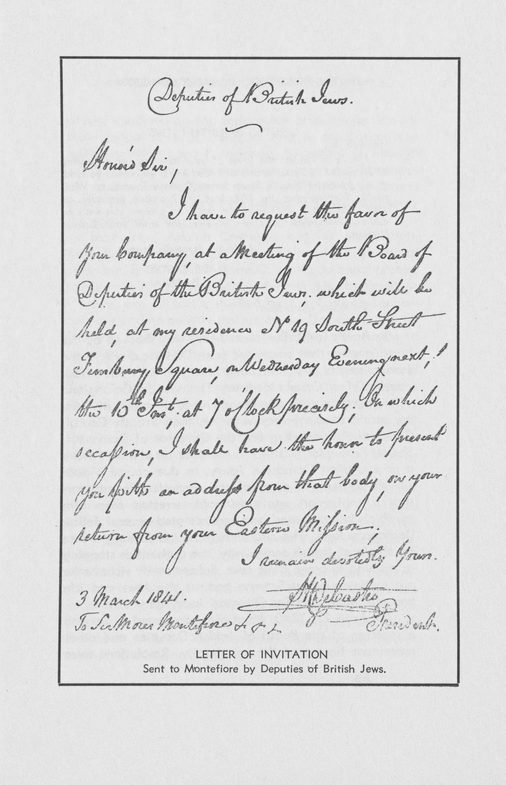 Deputies of British Jews.
Honor'd Sir,
I have to request the favor of
your Company, at a Meeting of the Board of
Deputies of the British Jews, which will be
held, at my residence No 19 South Street
Finsbury Square, on Wednesday Evening next,
the 10th Inst, at 7 o'Clock precisely; On which
occassion, I shall have the honor to present
you with an address from that body, on your
return from your Eastern Mission.
I remain devotedly Yours.
3 March 1841.
President.
To Sir Moses Montefiore & & &
LETTER OF INVITATION
Sent to Montefiore by Deputies of British Jews.